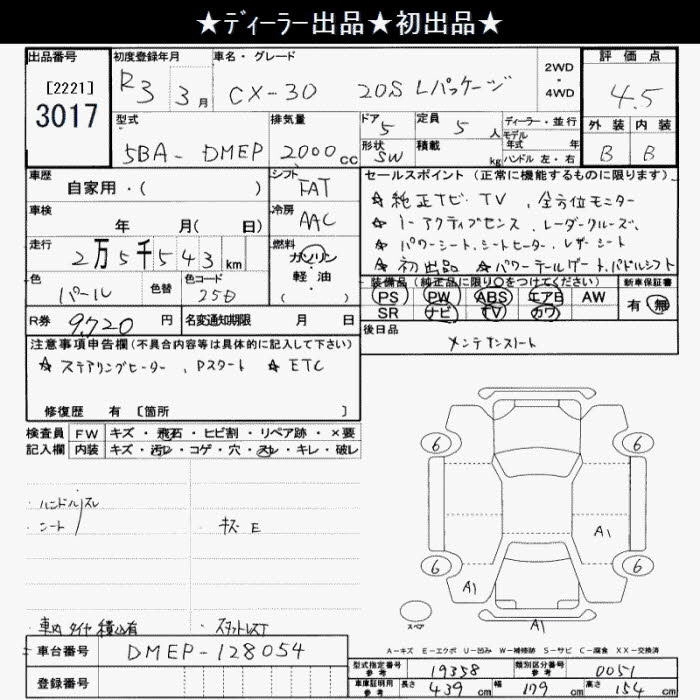 ★ディーラー出品★初出品★
出品番号 初度登録年月 車名・グレード 2WD・4WD 評価点
[2221]
3017
R3 3月 CX-30 20S Lパッケージ 4.5
型式 排気量 ドア 5 定員 5人 ディーラー・並行 外装 内装
モデル年式 年
5BA-DMEP 2000cc 形状 SW 積載 kg ハンドル 左・右 B B
車歴 自家用・( ) シフト FAT
セールスポイント(正常に機能するものに限ります)
車検 年 月( 日) 冷房 AAC
★純正ナビ・TV、全方位モニター
★トーアクティブセンス、レーダークルーズ、
走行 2万5千543km 燃料 ガソリン 軽・油 ( )
★パワーシート、シートヒーター、レザーシート
★初出品 ★パワーテールゲート、パドルシフト
色 パール 色替 色コード 25D
装備品(純正品に限り○をつけてください) 新車保証書
PS PW ABS エアB AW 有 無
SR ナビ TV カワ
R券 9,720円 名変通知期限 月 日
後日品 メンテナンスノート
注意事項申告欄(不具合内容等は具体的に記入して下さい)
★ステアリングヒーター、Pスタート ★ETC
修復歴 有 [箇所 ]
検査員 FW キズ・飛石・ヒビ割・リペア跡・×要
記入欄 内装 キズ・汚レ・コゲ・穴・スレ・キレ・破レ
・ハンドルスレ
・シート ・キズE
6 6
A1
6 6
A1
A1
スペア
車内タイヤ積込有 ・スタッドレスT
A-キズ E-エクボ U-凹み W-補修跡 S-サビ C-腐食 XX-交換済
車台番号 DMEP-128054
型式指定番号 参考 19358 類別区分番号 参考 0051
登録番号
車庫証明用 参考 長さ 439cm 幅 179cm 高さ 154cm